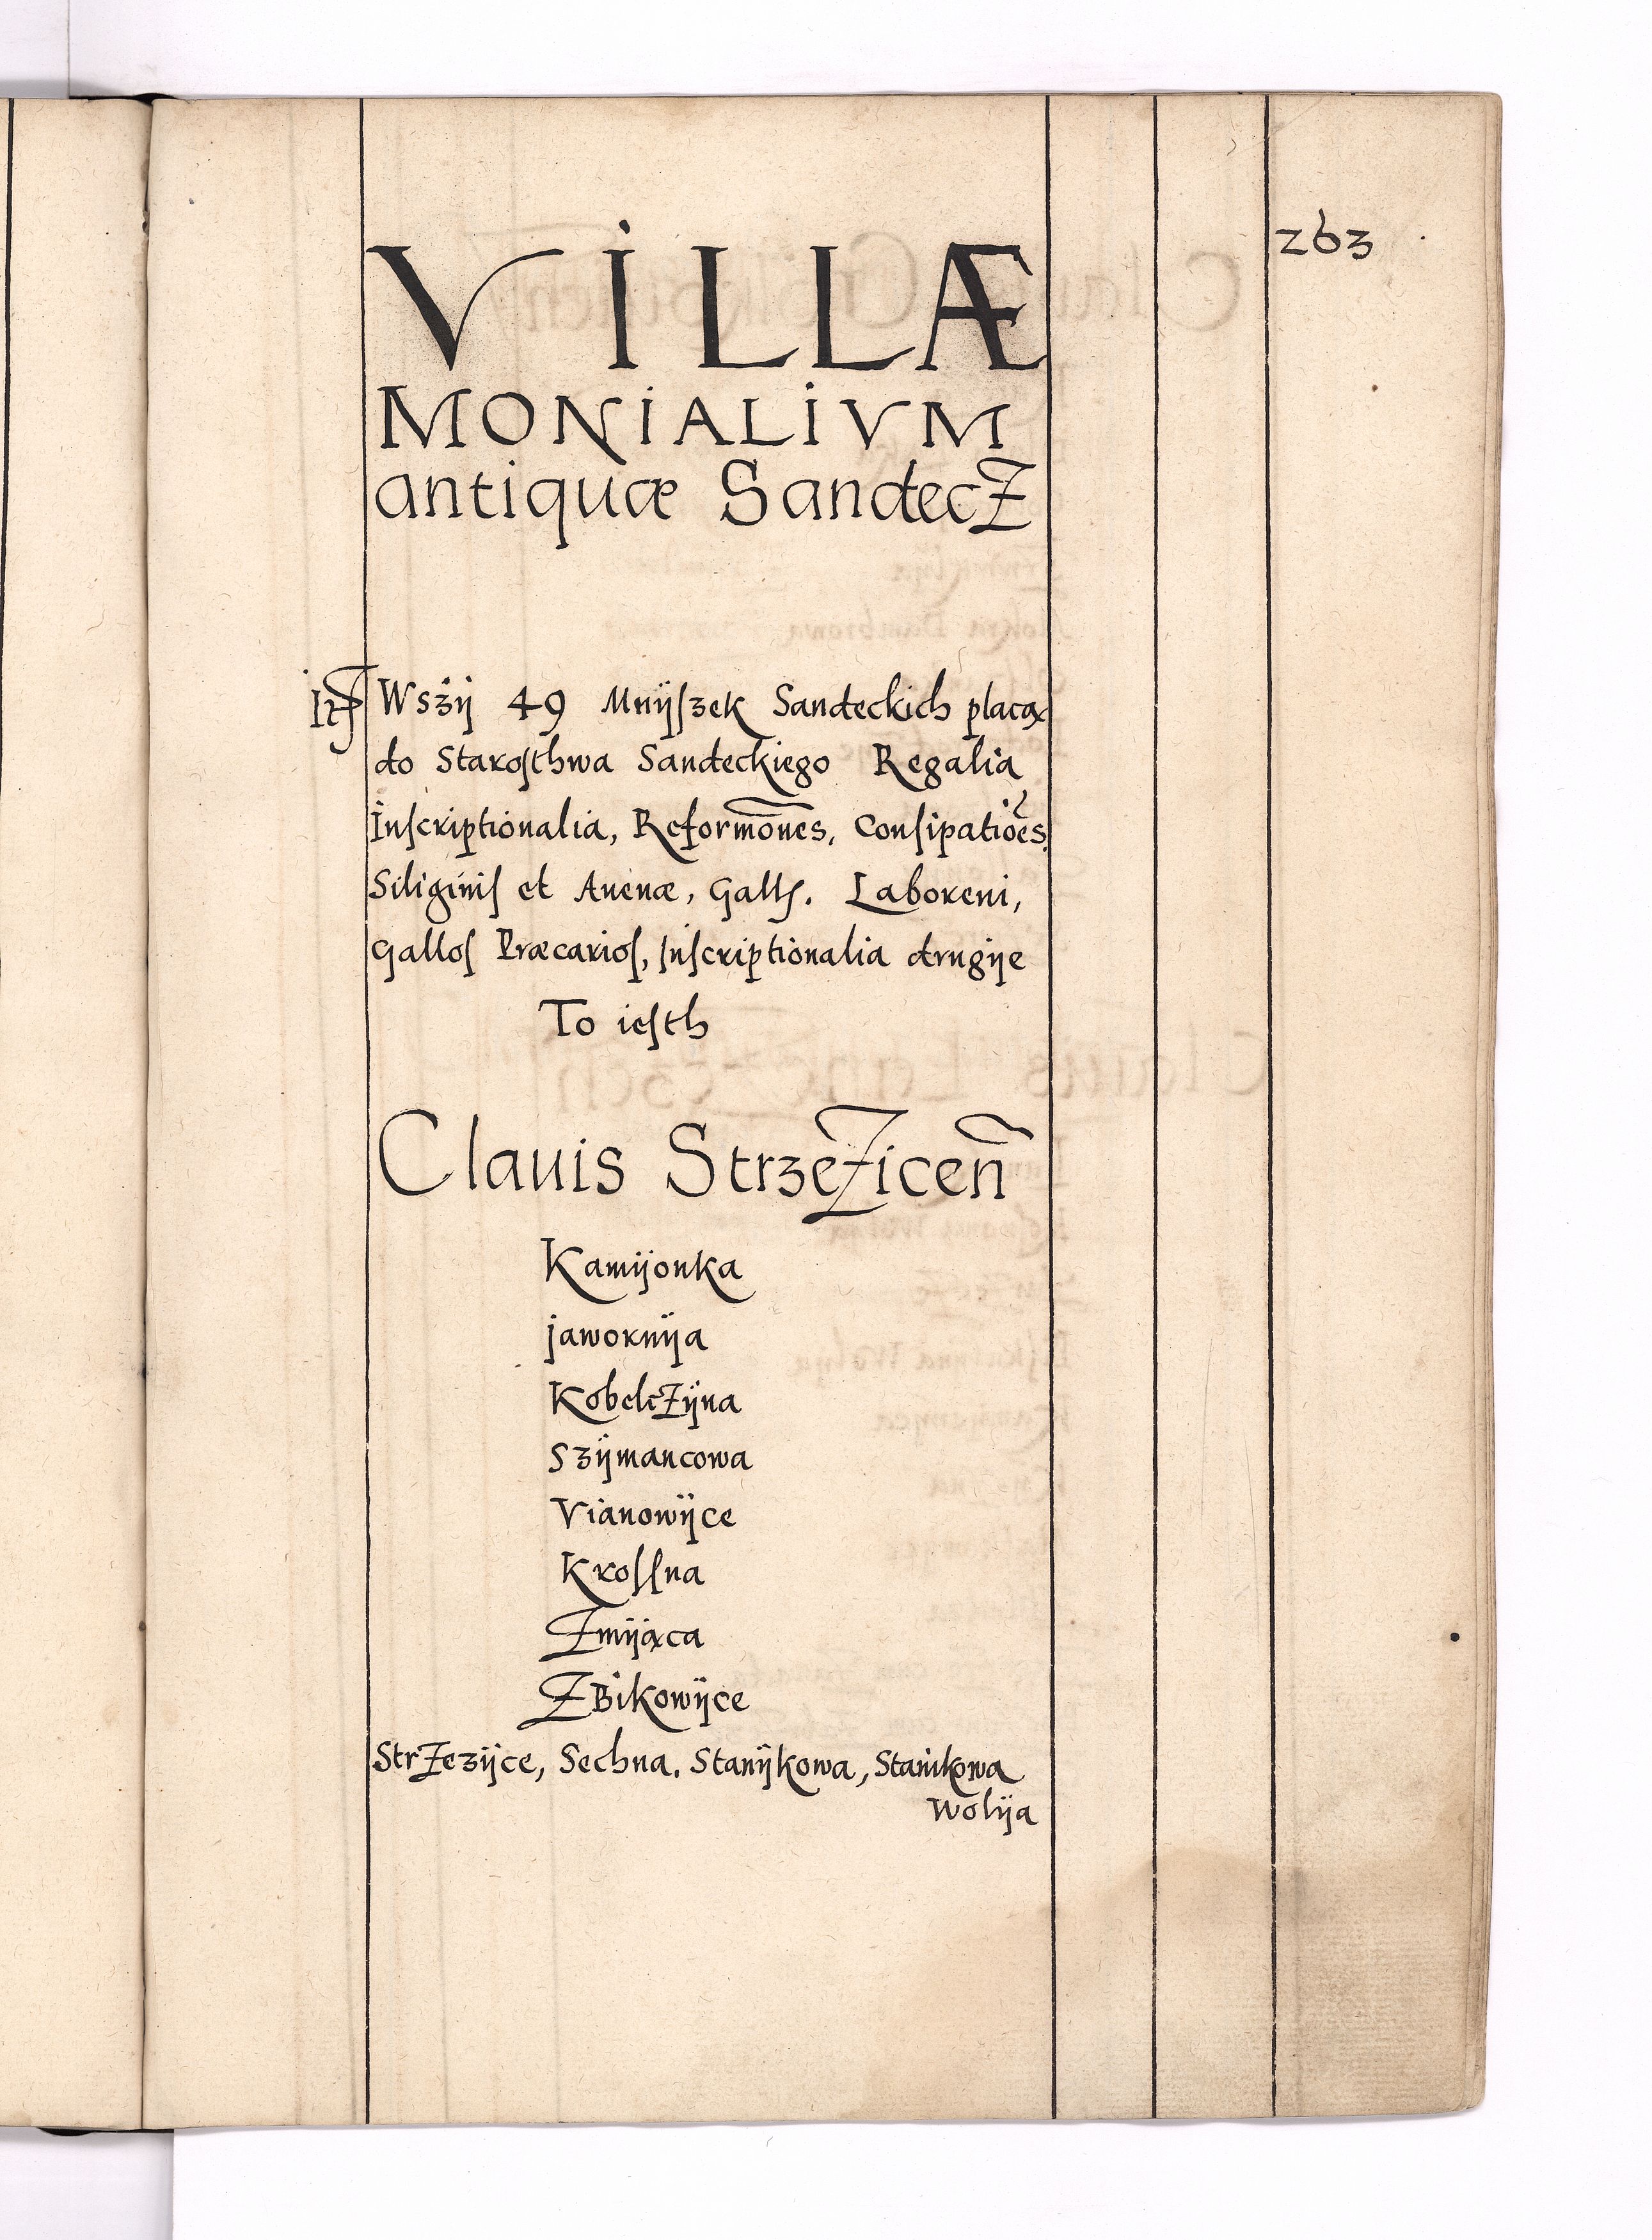 263
VILLÆ
MONIALIVM
antiquæ SandecZ
Itē Wsʒij 49 Mnijſzek Sandeckich placą
do Staroſthwa Sandeckiego Regalia
Inſcriptionalia, Reformōnes, Conſipatiōēs.
Siliginiſ et Auenæ, Gallſ. Laboreni,
Galloſ Præcarioſ, Inſcriptionalia drugije
To ieſth
Clauis StrzeZiceñ
Kamijonka
jawornija
KobelcZijna
Szijmancowa
Vianowijce
Kroſſna
Zmijąca
ZBikowijce
StrZezijce, Sechna, Stanijkowa, Stanikowa
Wolija